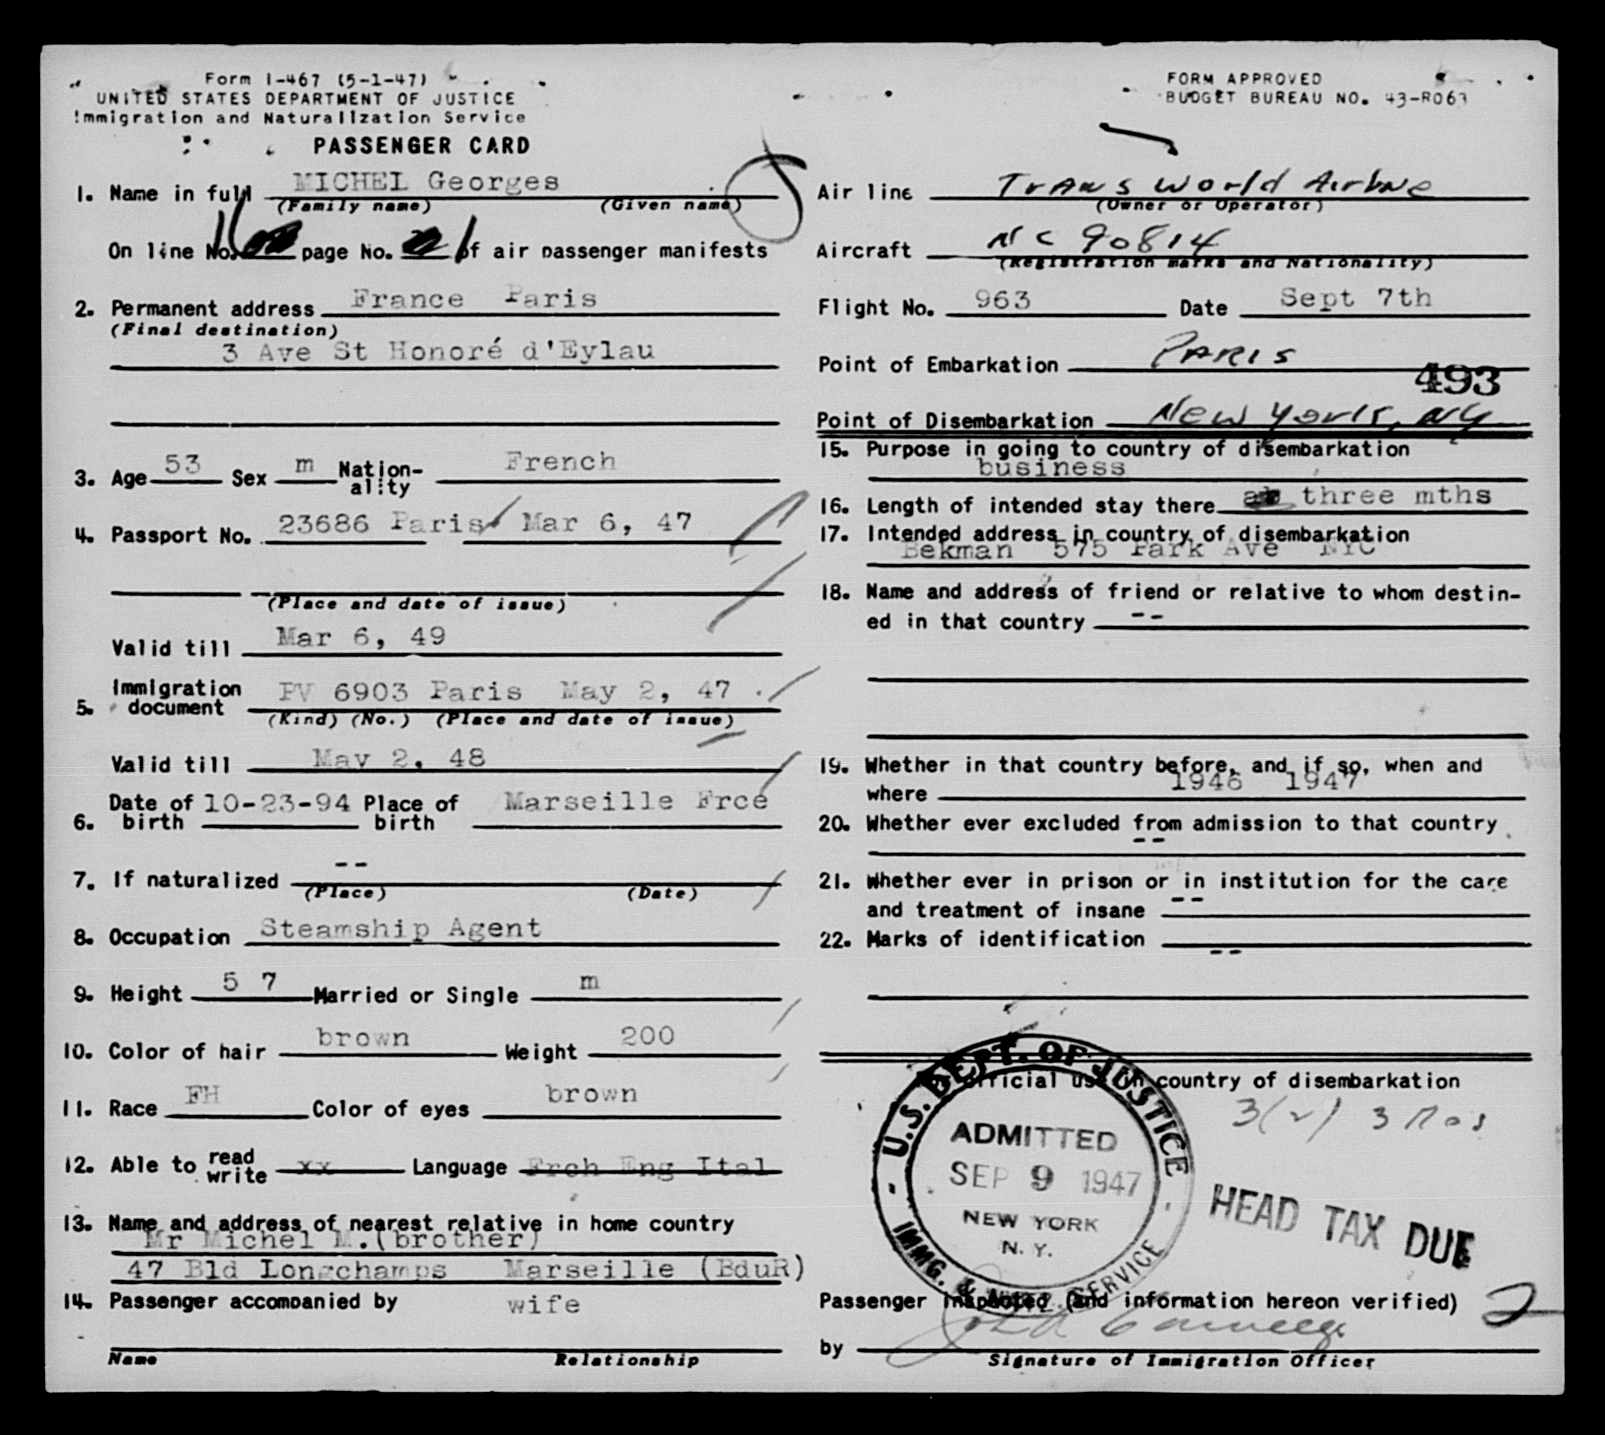 Form I-467 (5-1-47)
UNITED STATES DEPARTMENT OF JUSTICE
Immigration and Naturalization Service
PASSENGER CARD
FORM APPROVED
BUDGET BUREAU NO. 43-R063
1. Name in full MICHEL Georges
(Family name) (Given name)
On line No. 16 page No. 1 of air passenger manifests
2. Permanent address France Paris
(Final destination)
3 Ave St Honoré d'Eylau
3. Age 53 Sex m Nationality French
4. Passport No. 23686 Paris Mar 6, 47
(Place and date of issue)
Valid till Mar 6, 49
5. Immigration document PV 6903 Paris May 2, 47
(Kind) (No.) (Place and date of issue)
Valid till May 2, 48
6. Date of birth 10-23-94 Place of birth Marseille Frce
7. If naturalized --
(Place) (Date)
8. Occupation Steamship Agent
9. Height 5 7 Married or Single m
10. Color of hair brown Weight 200
11. Race FH Color of eyes brown
12. Able to read write xx Language Frch Eng Ital
13. Name and address of nearest relative in home country
Mr Michel M.(brother)
47 Bld Longchamps Marseille (BduR)
14. Passenger accompanied by wife
Name Relationship
Air line Trans World Airline
(Owner or Operator)
Aircraft NC 90814
(Registration marks and Nationality)
Flight No. 963 Date Sept 7th
Point of Embarkation PARIS
493
Point of Disembarkation New York, NY
15. Purpose in going to country of disembarkation
business
16. Length of intended stay there three mths
17. Intended address in country of disembarkation
Bekman 575 Park Ave NYC
18. Name and address of friend or relative to whom destin-
ed in that country --
19. Whether in that country before, and if so, when and
where 1946 1947
20. Whether ever excluded from admission to that country
--
21. Whether ever in prison or in institution for the care
and treatment of insane --
22. Marks of identification --
official use in country of disembarkation
3(2) 3 Mos
U.S. DEPT. OF JUSTICE
ADMITTED
SEP 9 1947
NEW YORK
N. Y.
IMMG. & NATZ. SERVICE
HEAD TAX DUE
Passenger inspected (and information hereon verified)
2
by
Signature of Immigration Officer